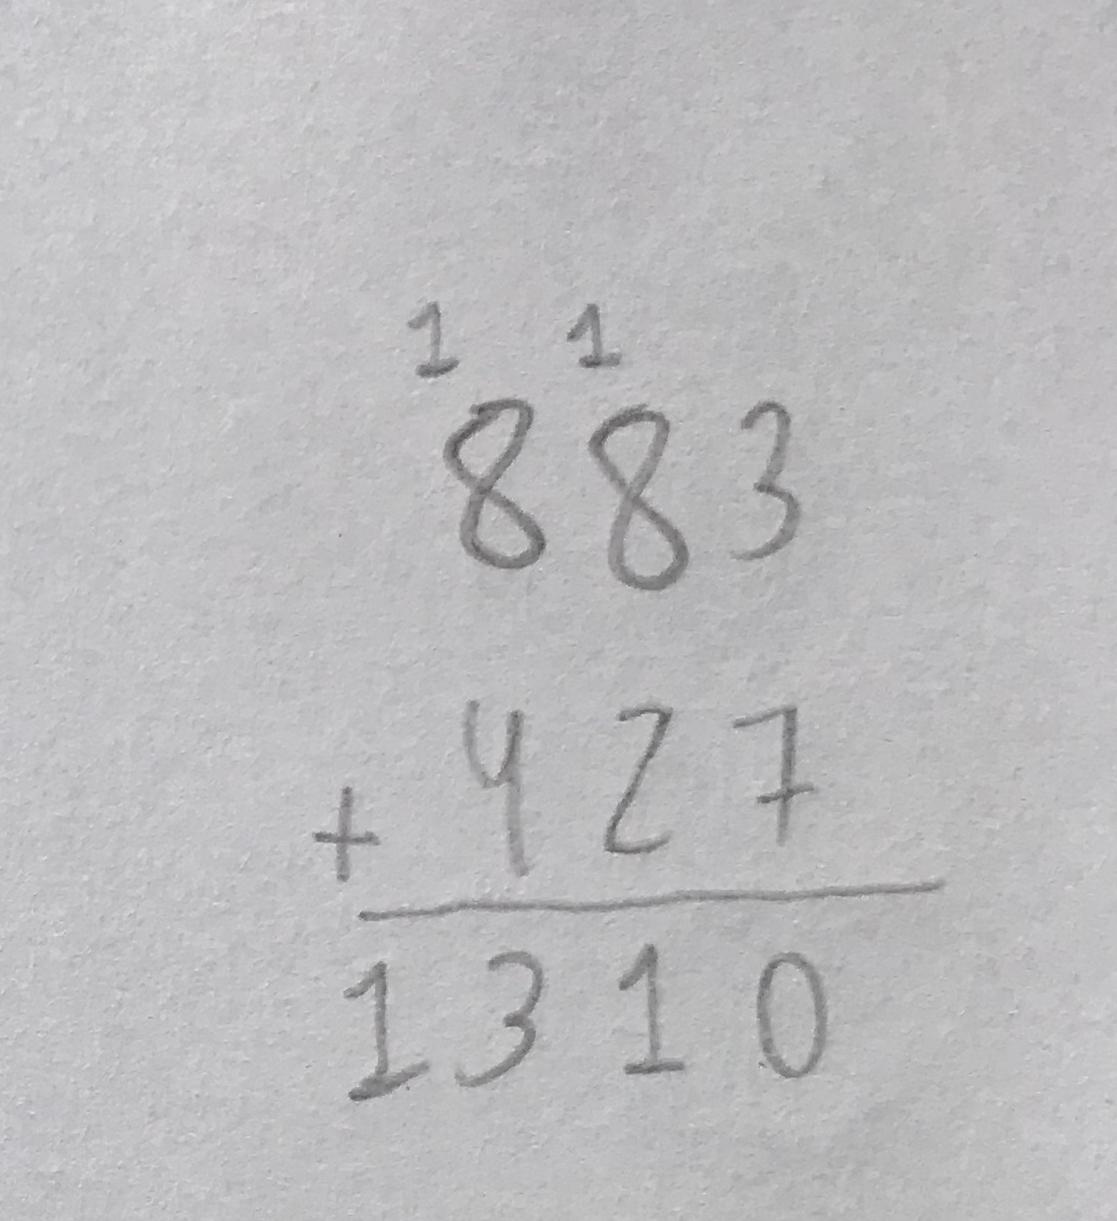 1 1
883
+ 427
1310